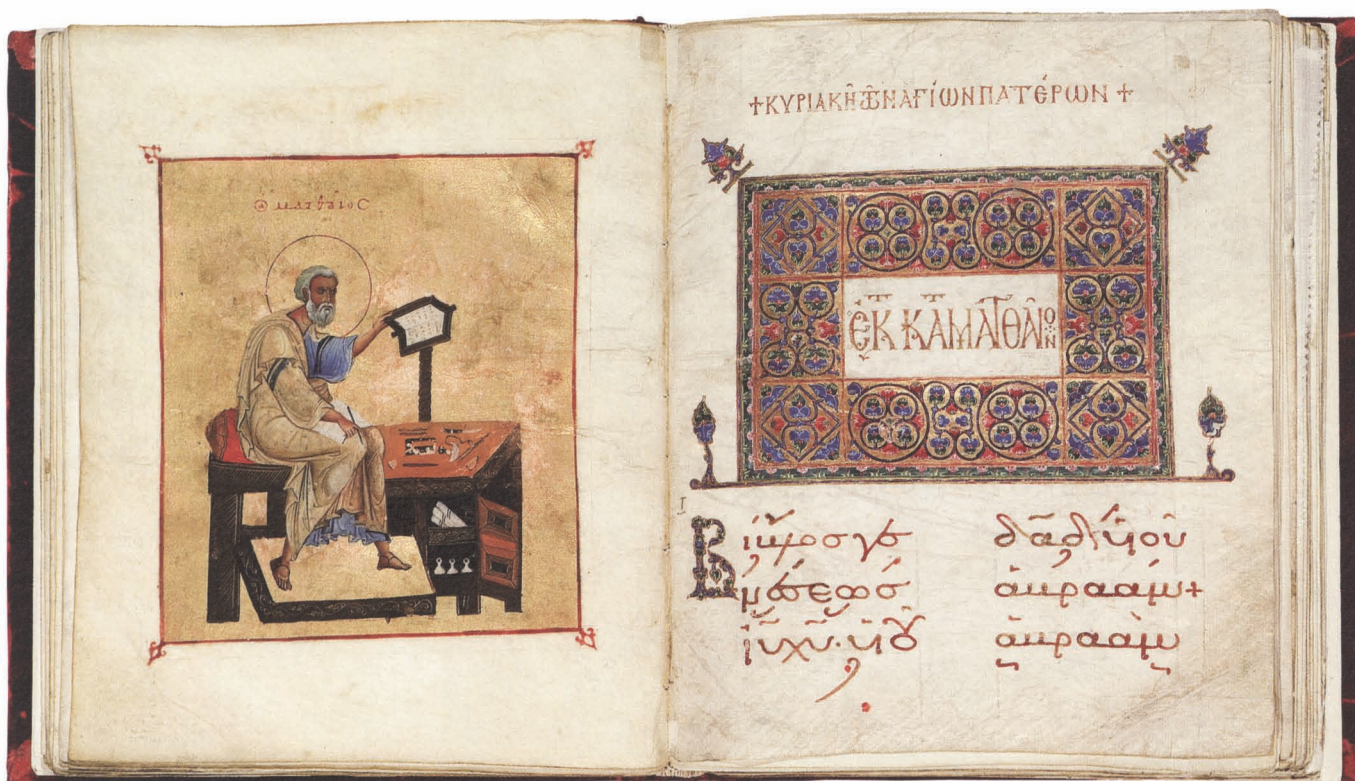 ὁ ματθαῖος
+ΚΥΡΙΑΚῊ ΤΩΝ ἉΓΊΩΝ ΠΑΤΈΡΩΝ+
ἘΚ ΚΑΜΑΤΘΑῖΟΝ
Βίβλος γε
νέσεως
ἰῦ χῦ· υἱοῦ
δᾱδ υἱοῦ
ἀβραάμ+
ἀβραὰμ